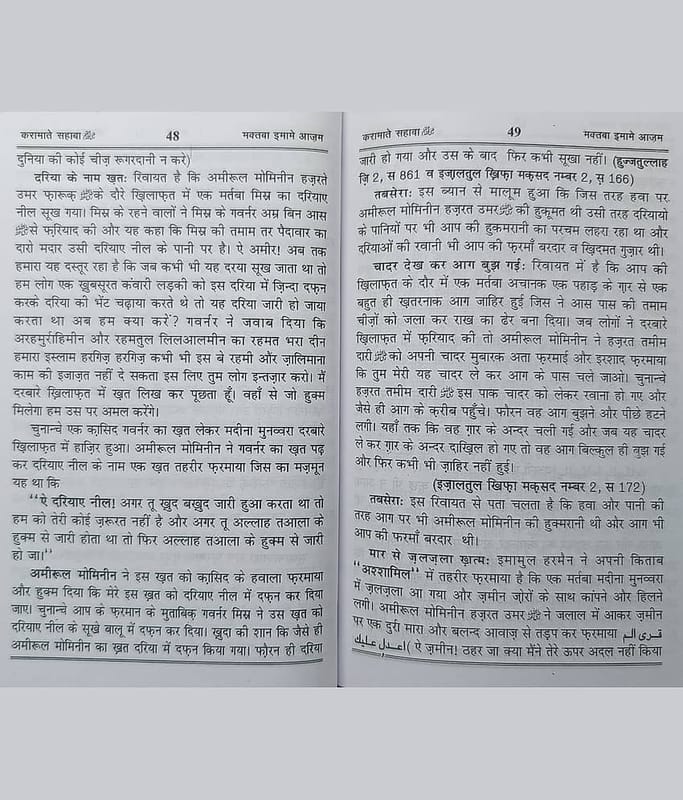 करामाते सहाबा 48 मक्तबा इमामे आज़म
दुनिया की कोई चीज़ रूगरदानी न करे)
दरिया के नाम ख़तः रिवायत है कि अमीरूल मोमिनीन हज़रते
उमर फ़ारूक़ के दौरे ख़िलाफ़त में एक मर्तबा मिस्र का दरियाए
नील सूख गया। मिस्र के रहने वालों ने मिस्र के गवर्नर अम्र बिन आस
से फ़रियाद की और यह कहा कि मिस्र की तमाम तर पैदावार का
दारो मदार उसी दरियाए नील के पानी पर है। ऐ अमीर! अब तक
हमारा यह दस्तूर रहा है कि जब कभी भी यह दरया सूख जाता था तो
हम लोग एक ख़ूबसूरत कंवारी लड़की को इस दरिया में ज़िन्दा दफ़न
करके दरिया की भेंट चढ़ाया करते थे तो यह दरिया जारी हो जाया
करता था अब हम क्या करें? गवर्नर ने जवाब दिया कि
अरहमुर्राहिमीन और रहमतुल लिलआलमीन का रहमत भरा दीन
हमारा इस्लाम हरगिज़ हरगिज़ कभी भी इस बे रहमी और ज़ालिमाना
काम की इजाज़त नहीं दे सकता इस लिए तुम लोग इन्तज़ार करो। मैं
दरबारे ख़िलाफ़त में ख़त लिख कर पूछता हूँ। वहाँ से जो हुक्म
मिलेगा हम उस पर अमल करेंगे।
चुनान्चे एक क़ासिद गवर्नर का ख़त लेकर मदीना मुनव्वरा दरबारे
ख़िलाफ़त में हाज़िर हुआ। अमीरूल मोमिनीन ने गवर्नर का ख़त पढ़
कर दरियाए नील के नाम एक ख़त तहरीर फ़रमाया जिस का मज़मून
यह था कि
‘‘ऐ दरियाए नील! अगर तू ख़ुद बख़ुद जारी हुआ करता था तो
हम को तेरी कोई ज़रूरत नहीं है और अगर तू अल्लाह तआला के
हुक्म से जारी होता था तो फिर अल्लाह तआला के हुक्म से जारी
हो जा।’’
अमीरूल मोमिनीन ने इस ख़त को क़ासिद के हवाला फ़रमाया
और हुक्म दिया कि मेरे इस ख़त को दरियाए नील में दफ़न कर दिया
जाए। चुनान्चे आप के फ़रमान के मुताबिक़ गवर्नर मिस्र ने उस ख़त को
दरियाए नील के सूखे बालू में दफ़न कर दिया। ख़ुदा की शान कि जैसे ही
अमीरूल मोमिनीन का ख़त दरिया में दफ़न किया गया। फ़ौरन ही दरिया
करामाते सहाबा 49 मक्तबा इमामे आज़म
जारी हो गया और उस के बाद फिर कभी सूखा नहीं। (हुज्जतुल्लाह
ज़ि 2, स 861 व इज़ालतुल ख़िफ़ा मक़सद नम्बर 2, स 166)
तबसेराः इस ब्यान से मालूम हुआ कि जिस तरह हवा पर
अमीरूल मोमिनीन हज़रत उमर की हुकूमत थी उसी तरह दरियायों
के पानियों पर भी आप की हुकमरानी का परचम लहरा रहा था और
दरियाओं की रवानी भी आप की फ़रमाँ बरदार व ख़िदमत गुज़ार थी।
चादर देख कर आग बुझ गईः रिवायत में है कि आप की
ख़िलाफ़त के दौर में एक मर्तबा अचानक एक पहाड़ के ग़ार से एक
बहुत ही ख़तरनाक आग जाहिर हुई जिस ने आस पास की तमाम
चीज़ों को जला कर राख का ढेर बना दिया। जब लोगों ने दरबारे
ख़िलाफ़त में फ़रियाद की तो अमीरूल मोमिनीन ने हज़रत तमीम
दारी को अपनी चादर मुबारक अता फ़रमाई और इरशाद फ़रमाया
कि तुम मेरी यह चादर ले कर आग के पास चले जाओ। चुनान्चे
हज़रत तमीम दारी इस पाक चादर को लेकर रवाना हो गए और
जैसे ही आग के क़रीब पहुँचे। फौरन वह आग बुझने और पीछे हटने
लगी। यहाँ तक कि वह ग़ार के अन्दर चली गई और जब यह चादर
ले कर ग़ार के अन्दर दाख़िल हो गए तो वह आग बिल्कुल ही बुझ गई
और फिर कभी भी ज़ाहिर नहीं हुई।
(इज़ालतुल खिफ़ा मक़सद नम्बर 2, स 172)
तबसेराः इस रिवायत से पता चलता है कि हवा और पानी की
तरह आग पर भी अमीरूल मोमिनीन की हुक्मरानी थी और आग भी
आप की फरमाँ बरदार थी।
मार से ज़लज़ला ख़त्मः इमामुल हरमैन ने अपनी किताब
‘‘अश्शामिल’’ में तहरीर फ़रमाया है कि एक मर्तबा मदीना मुनव्वरा
में ज़लज़ला आ गया और ज़मीन ज़ोरों के साथ कांपने और हिलने
लगी। अमीरूल मोमिनीन हज़रत उमर ने जलाल में आकर ज़मीन
पर एक दुरी मारा और बलन्द आवाज़ से तड़प कर फ़रमाया قرى الم
اعدل عليك (ऐ ज़मीन! ठहर जा क्या मैंने तेरे ऊपर अदल नहीं किया